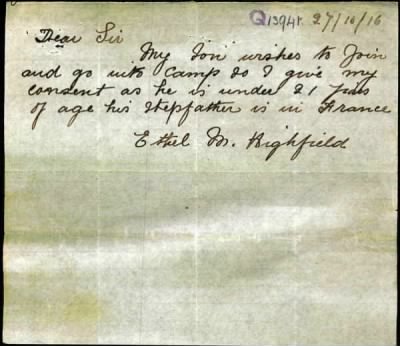 Q13941 27/10/16
Dear Sir
My Son wishes to Join
and go into Camp so I give my
consent as he is under 21 years
of age his stepfather is in France
Ethel M. Highfield